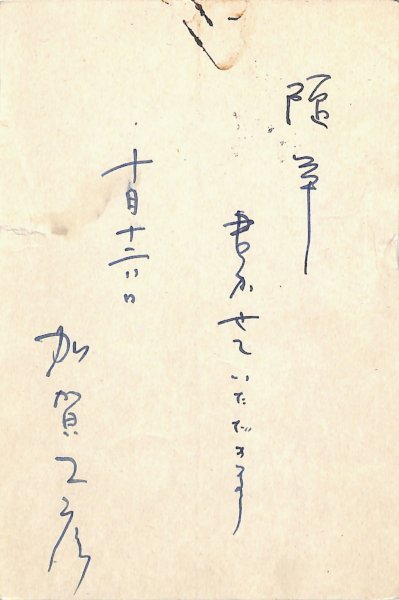 随筆
書かせていただきます
十月十二日
加賀乙彦